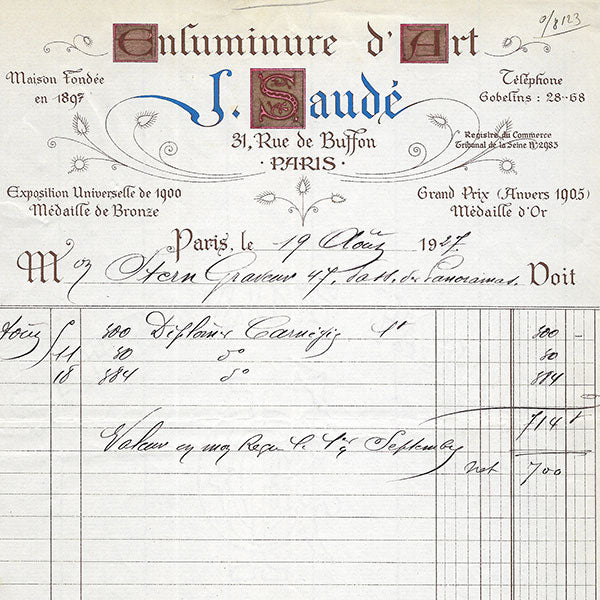 Enluminure d'Art
J. Saudé
Maison Fondée
en 1897
Téléphone
Gobelins : 28-68
31, Rue de Buffon
· PARIS ·
Registre du Commerce
Tribunal de la Seine N° 2985
Exposition Universelle de 1900
Médaille de Bronze
Grand Prix (Anvers 1905)
Médaille d'Or
Paris, le 19 Août 1927.
M on Stern Graveur 47, Pass. des Panoramas. Doit
Août 300 Diplômes Carnégie 300 -
11 30 d° 30
18 384 d° 384
714 f
Valeur en mon Reçu Septembre
net 700